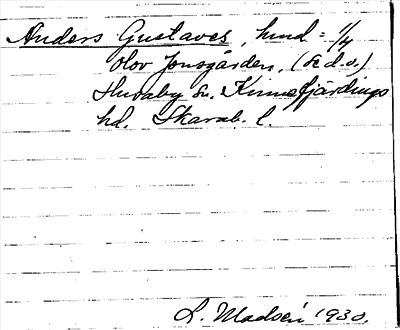 Anders Gustaves, hmd = 1/4
Olov Jonsgården, (Se d.o.)
Husaby sn. Kinnefjärdings
hd. Skarab. l.
L. Madsén 1930.